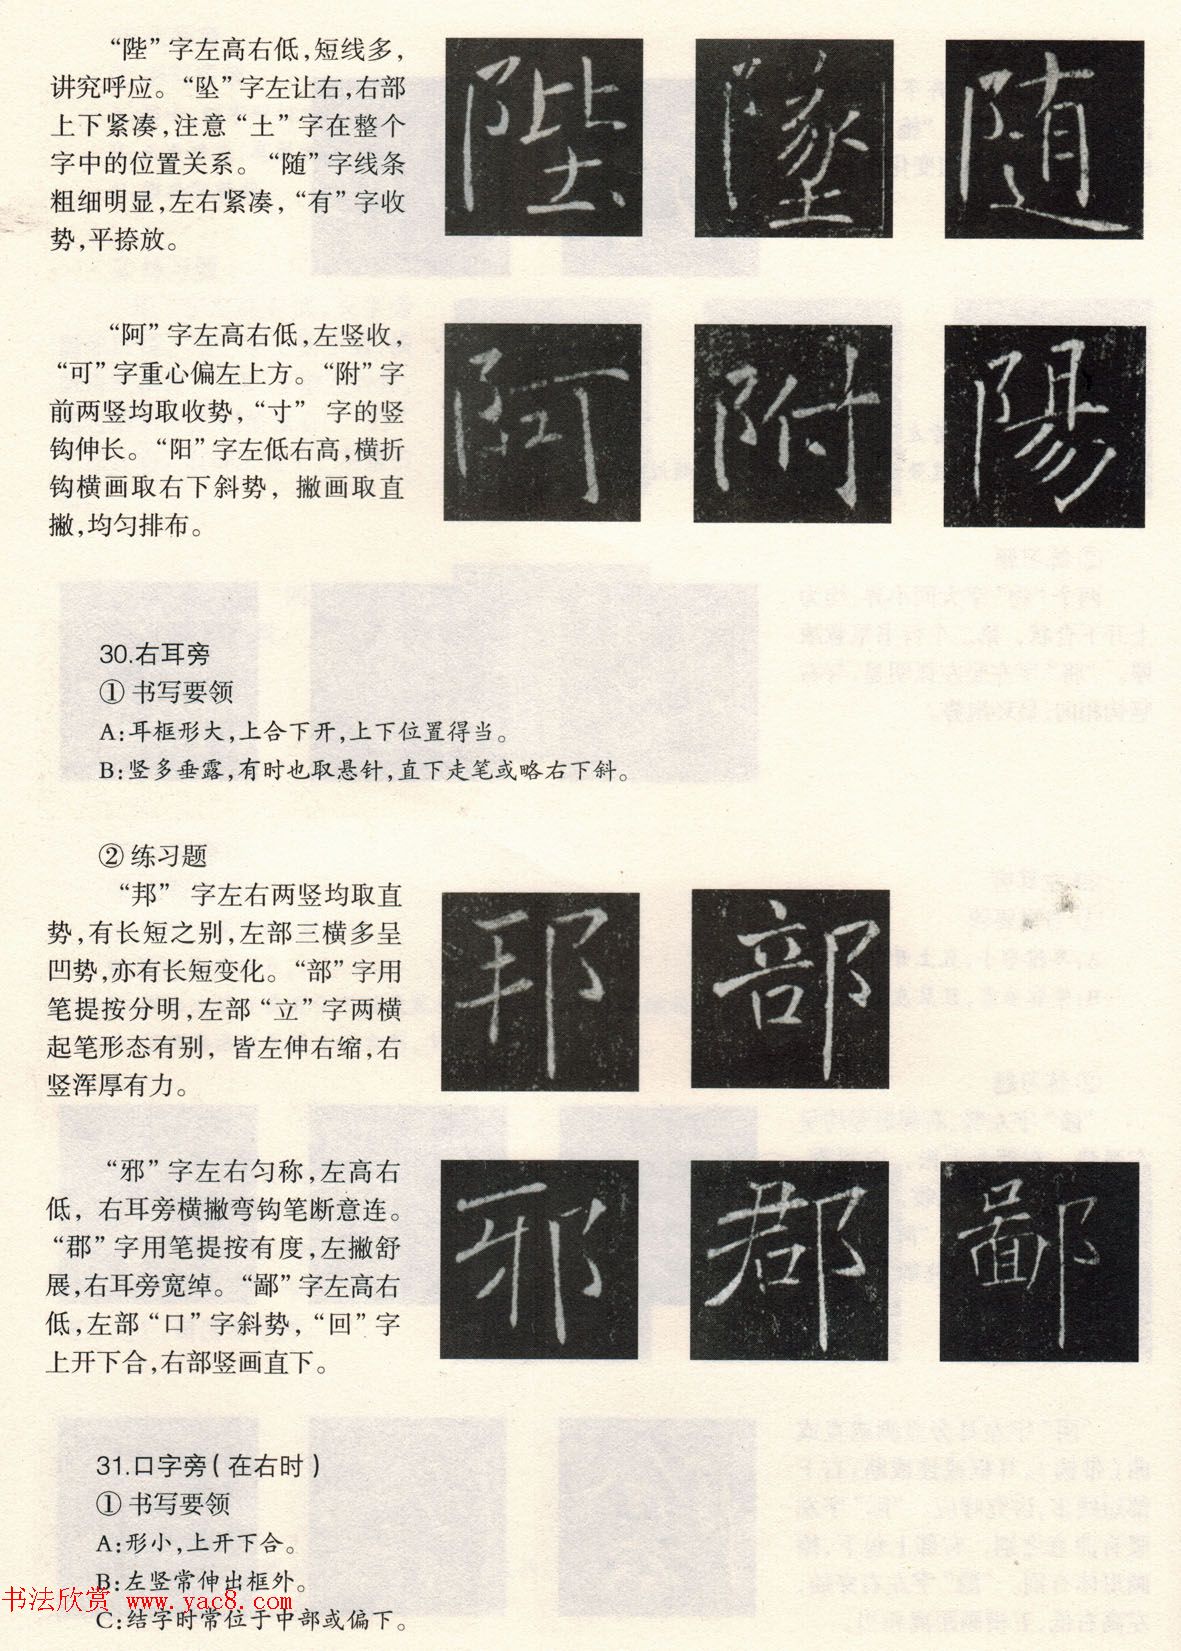 “陛”字左高右低，短线多，
讲究呼应。“坠”字左让右，右部
上下紧凑，注意“土”字在整个
字中的位置关系。“随”字线条
粗细明显，左右紧凑，“有”字收
势，平捺放。
陛 墜 随
“阿”字左高右低，左竖收，
“可”字重心偏左上方。“附”字
前两竖均取收势，“寸”字的竖
钩伸长。“阳”字左低右高，横折
钩横画取右下斜势，撇画取直
撇，均匀排布。
阿 附 陽
30.右耳旁
① 书写要领
A：耳框形大，上合下开，上下位置得当。
B：竖多垂露，有时也取悬针，直下走笔或略右下斜。
② 练习题
“邦”字左右两竖均取直
势，有长短之别，左部三横多呈
凹势，亦有长短变化。“部”字用
笔提按分明，左部“立”字两横
起笔形态有别，皆左伸右缩，右
竖浑厚有力。
邦 部
“邪”字左右匀称，左高右
低，右耳旁横撇弯钩笔断意连。
“郡”字用笔提按有度，左撇舒
展，右耳旁宽绰。“鄙”字左高右
低，左部“口”字斜势，“回”字
上开下合，右部竖画直下。
邪 郡 鄙
31.口字旁（在右时）
① 书写要领
A：形小，上开下合。
B：左竖常伸出框外。
C：结字时常位于中部或偏下。
书法欣赏 www.yac8.com